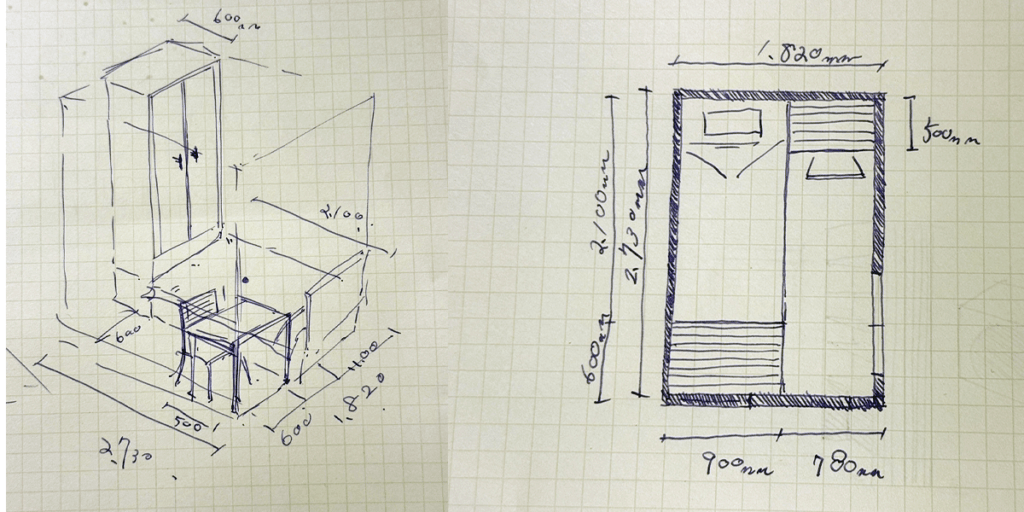 600mm
2.100
600
500
2.730
600
1.820
1.820mm
500mm
2.100mm
2.730mm
600mm
900mm
780mm